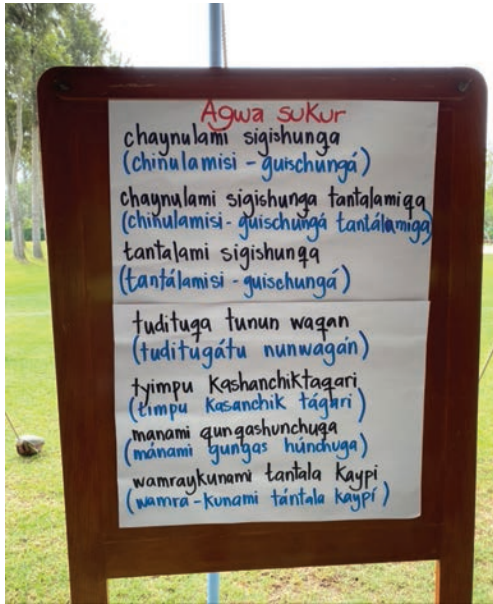 Agwa sukur
chaynulami sigishunga
(chinulamisi - guischungá)
chaynulami sigishunga tantalamiqa
(chinulamisi - guischungá tantálamiga)
tantalami sigishunqa
(tantálamisi - guischungá)
tudituqa tunun waqan
(tuditugátu nunwagán)
tyimpu kashanchiktaqari
(tímpu kasanchik tágari)
manami qungashunchuqa
(mánami gungas húnchuga)
wamraykunami tantala kaypi
(wamra - kunami tántala kaypí)